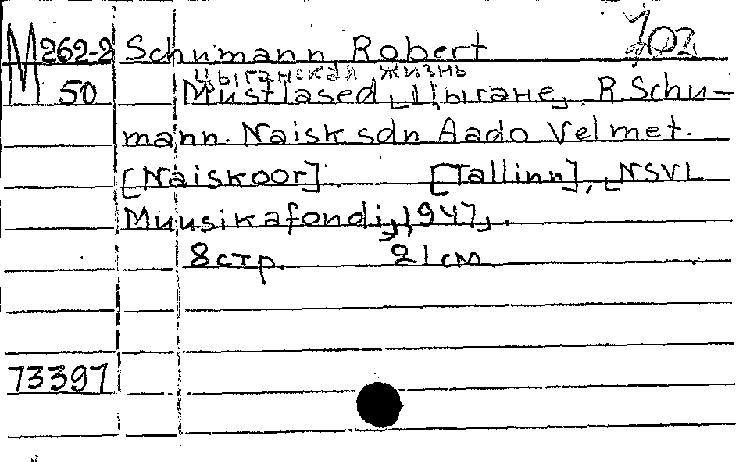 M 262-2 Schumann Robert 102
цыганская жизнь
50 Mustlased [Цыгане]. R. Schu-
mann. Naisk. sdn Aado Velmet.
[Naiskoor]. [Tallinn], [NSVL
Muusikafondi, 1947].
8 стр. 21 см
73397